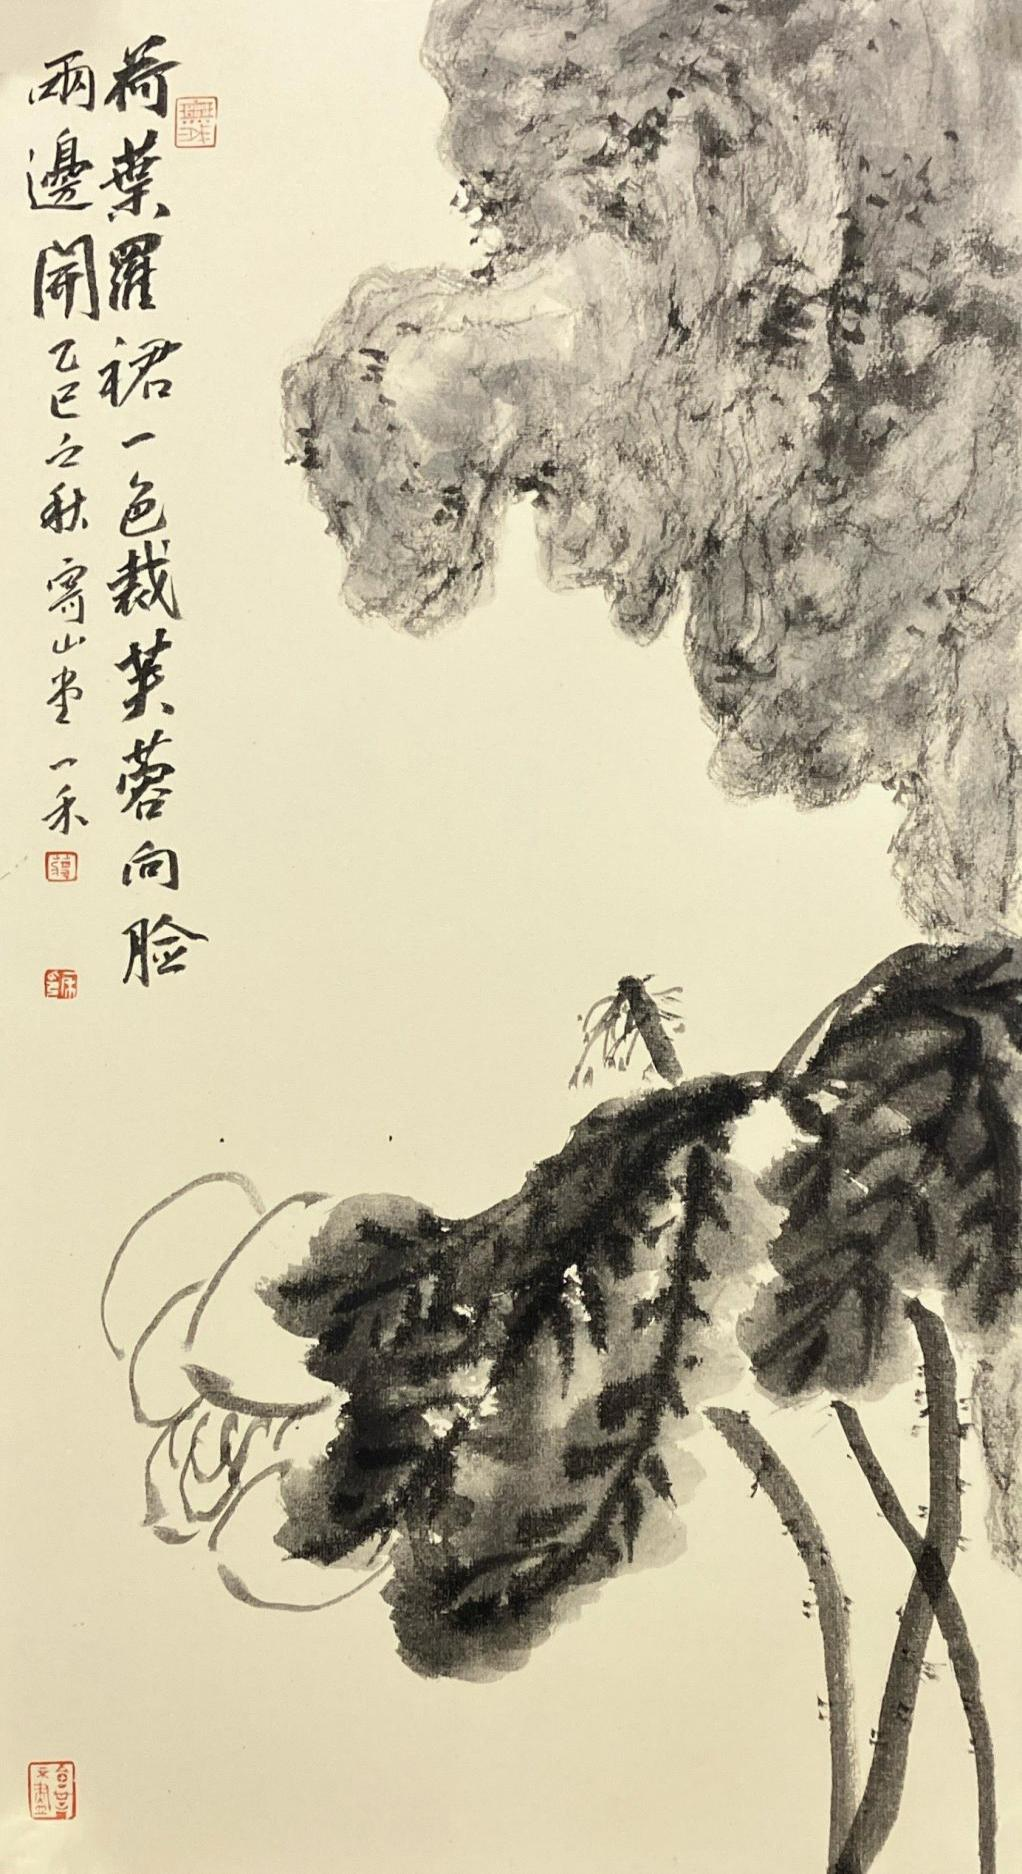 荷葉羅裙一色裁芙蓉向脸
兩邊開乙巳之秋寫山堂一禾